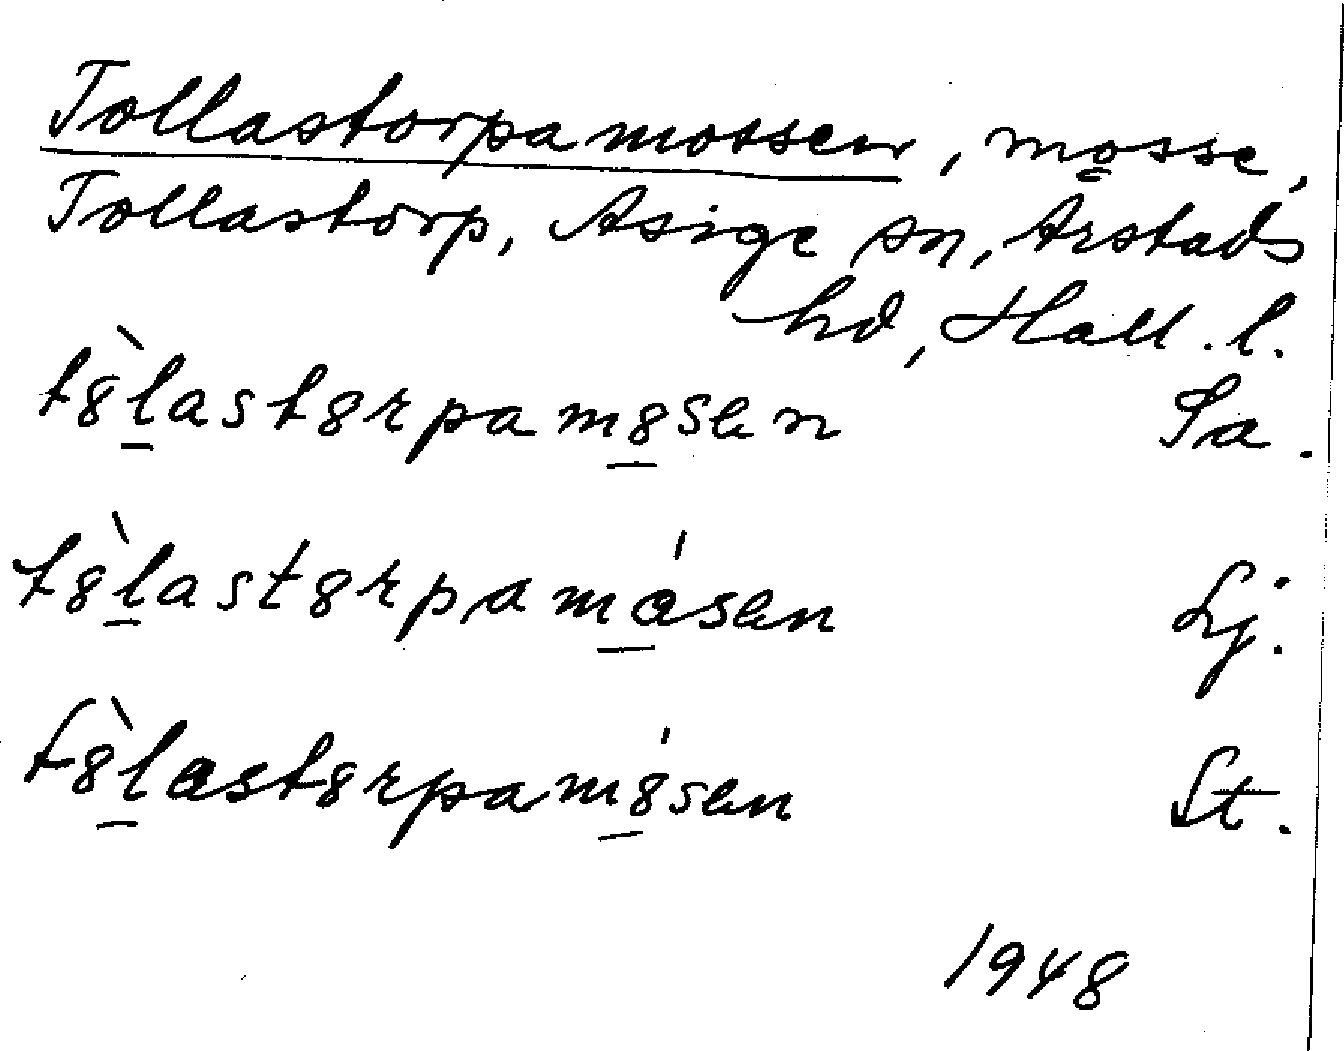 Tollastorpamossen, mosse,
Tollastorp, Asige sn, Årstads
hd, Hall. l.
t8̀last8rpam8sen Sa.
t8̀last8rpamásen Lj.
t8̀last8rpam8́sen St.
1948